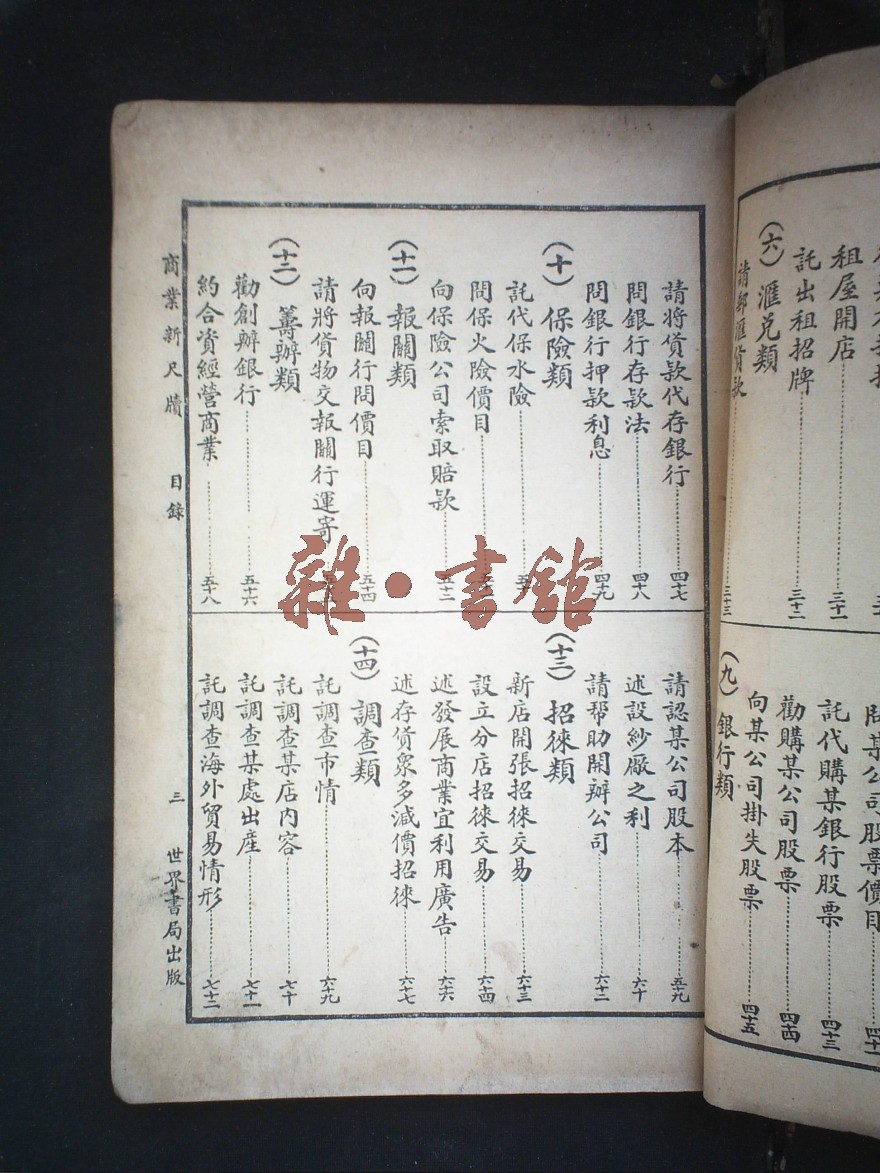 租屋開店 三十一
託出租招牌 三十二
(六) 滙兌類
請郵滙貨款 三十三
問某公司股票價目
託代購某銀行股票 四十三
勸購某公司股票 四十四
向某公司掛失股票 四十五
(九) 銀行類
請將貨款代存銀行 四十七
問銀行存款法 四十八
問銀行押款利息 四十九
(十) 保險類
託代保水險
問保火險價目
向保險公司索取賠款 五十二
(十一) 報關類
向報關行問價目 五十四
請將貨物交報關行運寄
(十二) 籌辦類
勸創辦銀行 五十六
約合資經營商業 五十八
請認某公司股本 五十九
述設紗廠之利 六十
請帮助開辦公司 六十二
(十三) 招徠類
新店開張招徠交易 六十三
設立分店招徠交易 六十四
述發展商業宜利用廣告 六十六
述存貨衆多減價招徠 六十七
(十四) 調查類
託調查市情 六十九
託調查某店内容 七十
託調查某處出產 七十一
託調查海外貿易情形 七十二
商業新尺牘 目錄 三 世界書局出版
雜·書館